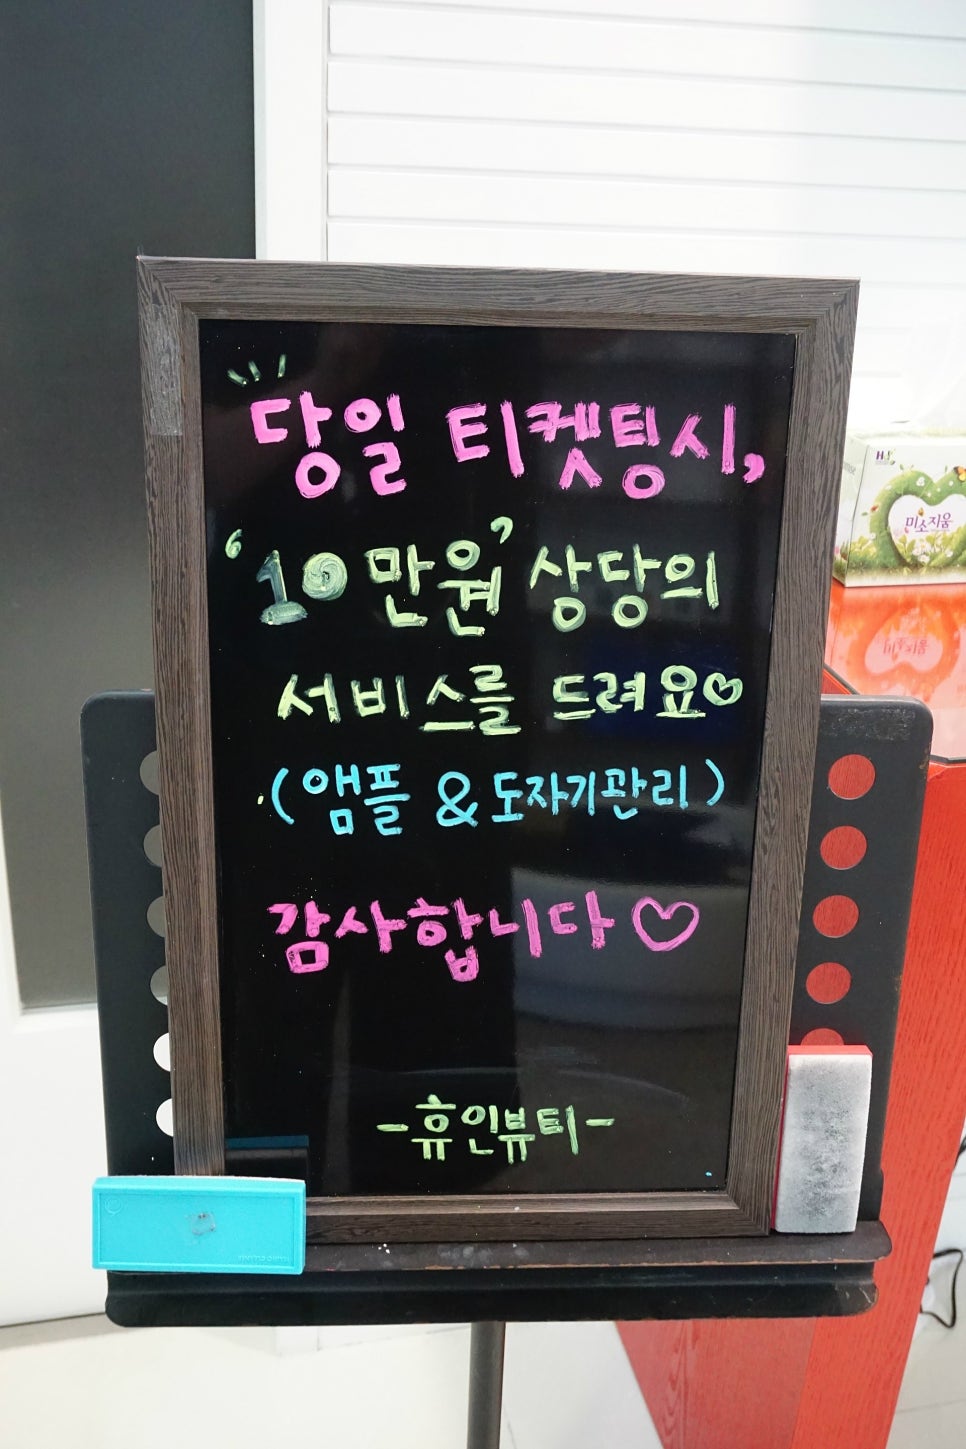 당일 티켓팅시,
'10만원' 상당의
서비스를 드려요♡
(앰플 & 도자기관리)
감사합니다♡
-휴인뷰티-
미소지움
미소지움